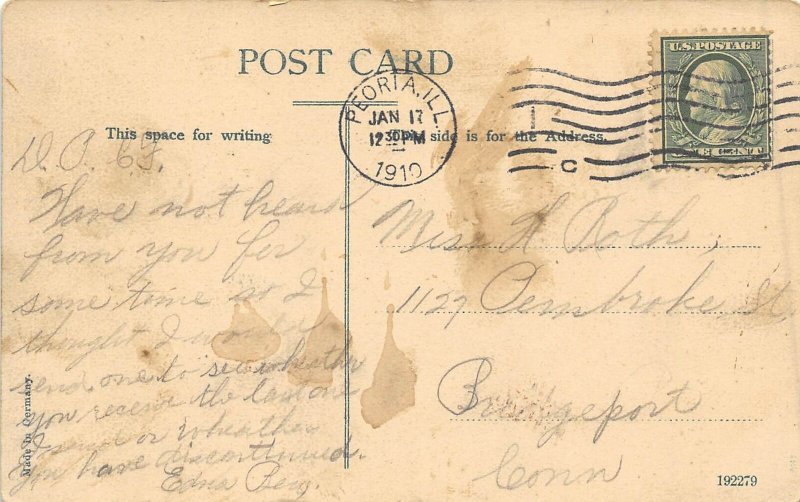 POST CARD
This space for writing
side is for the Address.
PEORIA, ILL.
JAN 17
12 30 PM
1910
C
U.S. POSTAGE
ONE CENT
D. P. Cf.
Have not heard
from you for
some time so I
thought I would
send one to see wheather
you receive the last one
I send or wheather
you have discontinued.
Edna
Miss H Roth,
1127 Pembroke St.
Bridgeport
Conn
Made in Germany.
192279